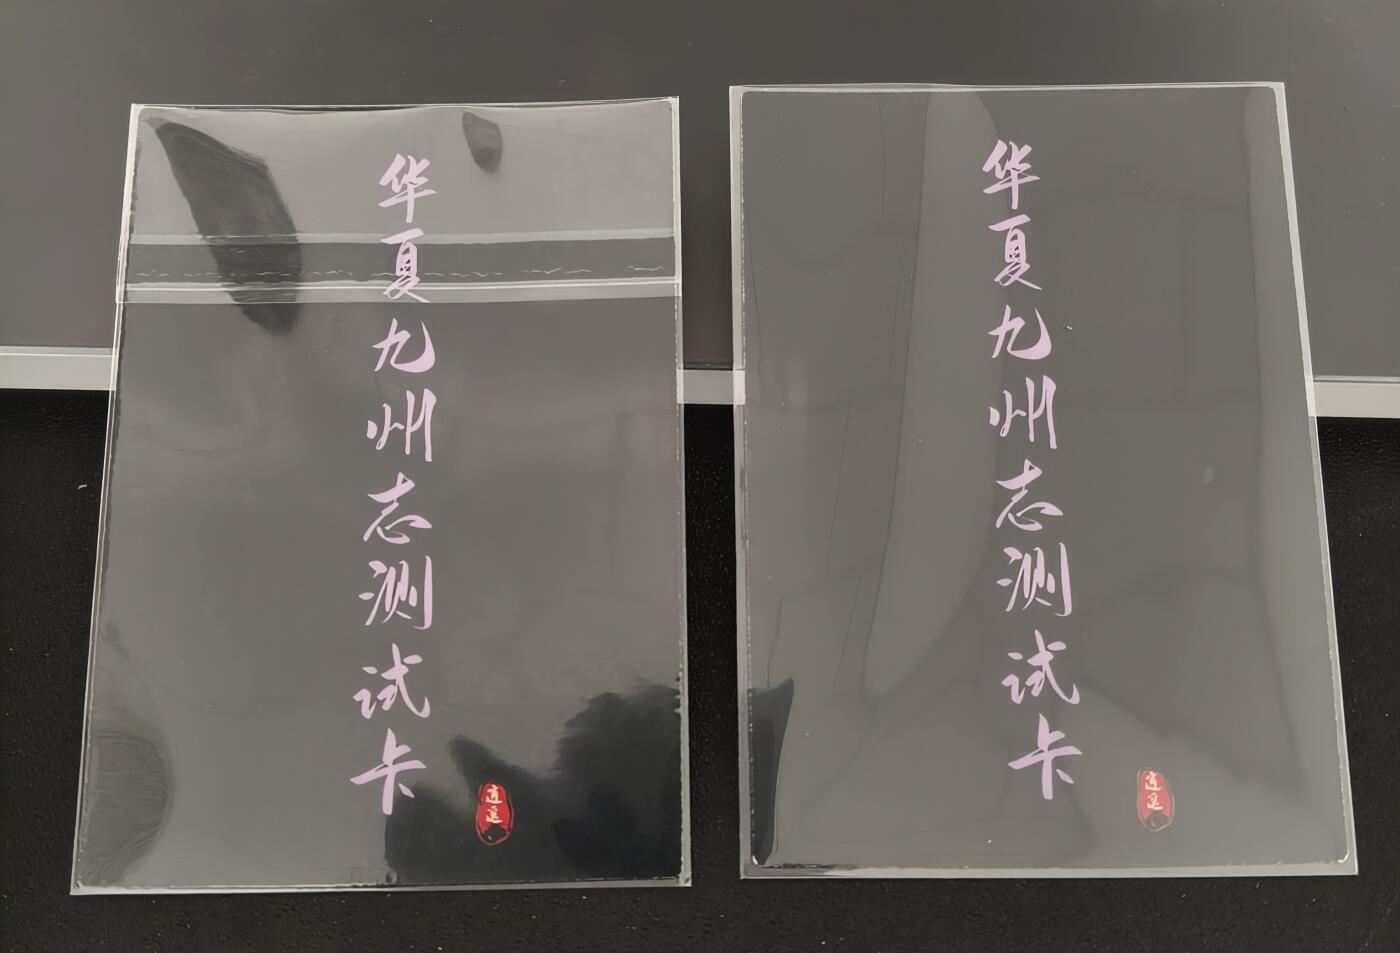 华夏九州志测试卡
逍遥
华夏九州志测试卡
逍遥